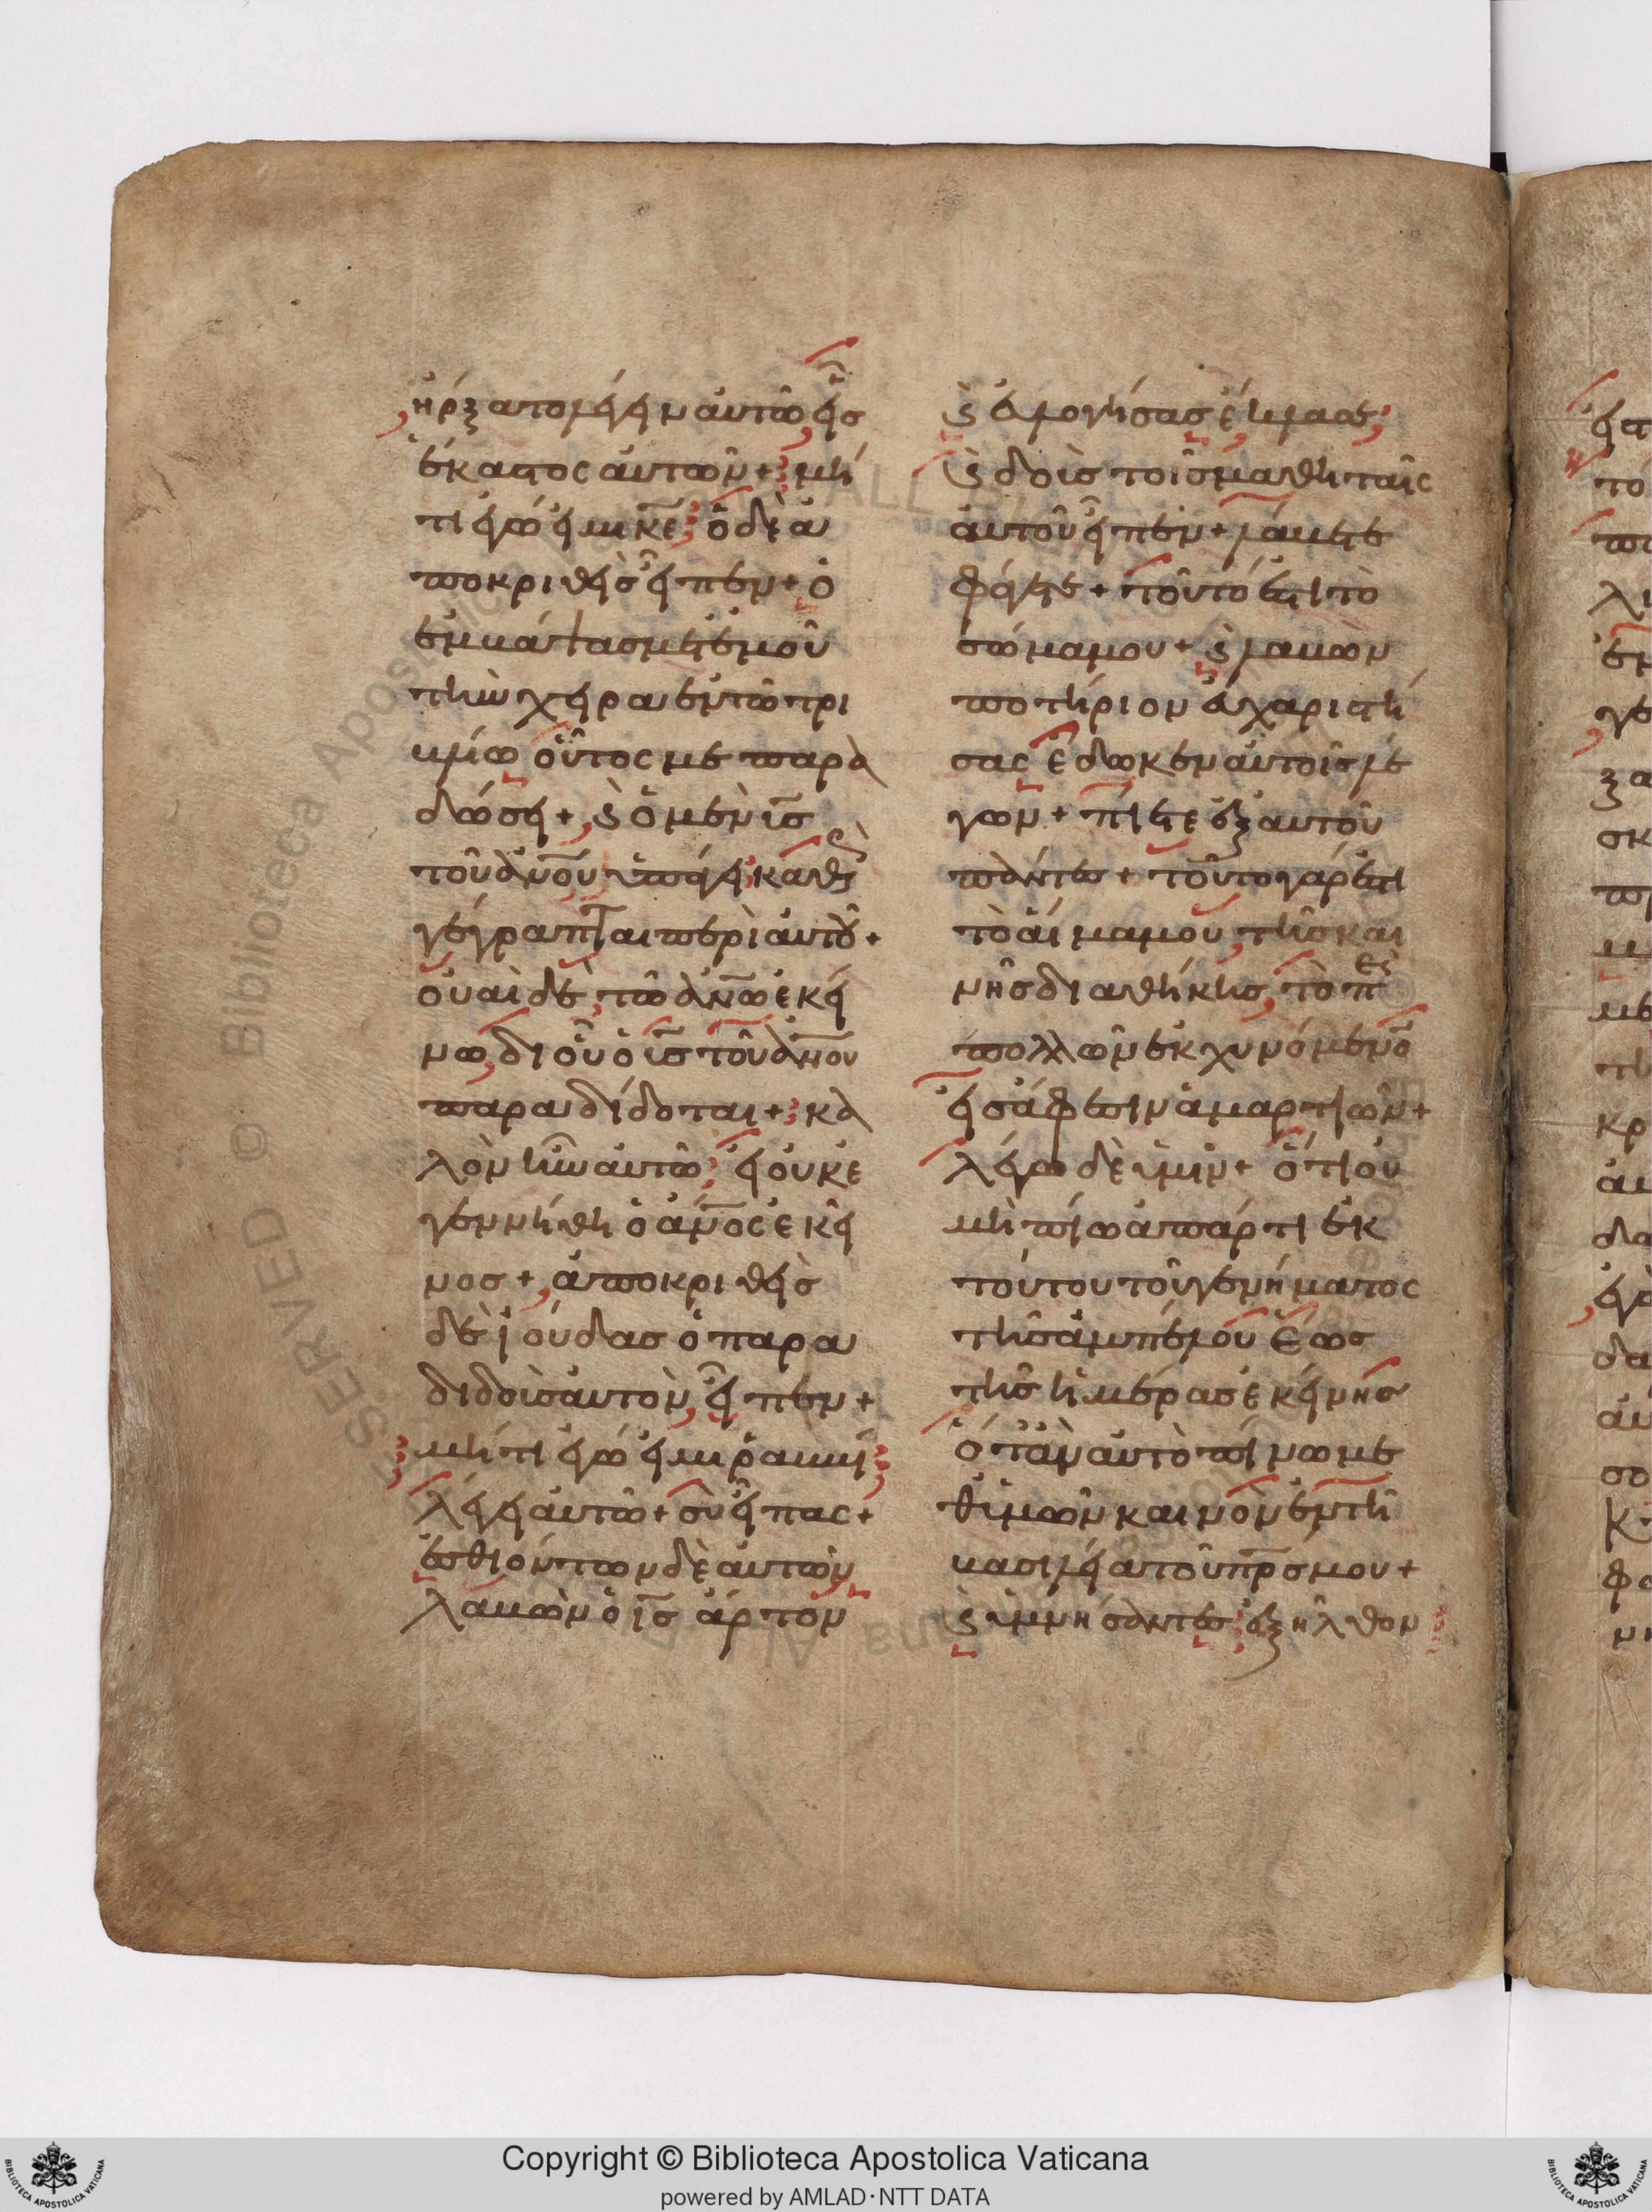 ἤρξατο λέγειν αὐτῶ εἷσ
ἕκαστος αὐτῶν + μή
τι ἐγώ εἰμι κε ὁ δὲ ἀ
ποκριθεὶσ εἶπεν + ὁ
ἐμβάψας μετ ἐμοῦ
τὴν χεῖρα ἐν τῶ τρι
βλίω οὗτος με παρα
δώσει + ϗ ὁ μὲν ισ
τοῦ ανου ὑπάγει καθὼς
γέγραπται περὶ αὐτοῦ +
οὐαὶ δὲ τῶ ανω ἐκεί
νω δι οὗ ὁ ισ τοῦ ανου
παραδίδοται + κα
λὸν ἦν αὐτῶ εἰ οὐκ ἐ
γεννήθη ὁ ανος ἐκεῖ
νοσ + ἀποκριθεὶσ
δὲ ἰούδασ ὁ παρα
διδοὺσ αὐτὸν εἶπεν +
μήτι ἐγώ εἰμι ῥαββί
λέγει αὐτῶ + σὺ εἶπας +
ἐσθιόντων δὲ αὐτῶν
λαβὼν ὁ ισ ἄρτον
ϗ εὐλογήσασ ἔκλασε
ϗ δοὺσ τοῖσ μαθηταῖς
αὐτοῦ εἶπεν + λάβετε
φάγετε + τοῦτό ἐστι τὸ
σῶμα μου + ϗ λαβὼν
ποτήριον εὐχαριστή
σας ἔδωκεν αὐτοῖσ λέ
γων + πίετε ἐξ αὐτοῦ
πάντεσ + τοῦτο γάρ ἐστι
τὸ αἷμα μου τῆσ και
νῆσ διαθήκησ τὸ περ
πολλῶν ἐκχυνόμενο
εἰσ ἄφεσιν ἁμαρτιῶν +
λέγω δὲ ὑμῖν + ὅτι οὐ
μὴ πίω ἀπάρτι ἐκ
τούτου τοῦ γενήματος
τῆσ ἀμπέλου ἕωσ
τῆσ ἡμέρασ ἐκείνησ
ὅταν αὐτὸ πίνω με
θ ὑμῶν καινὸν ἐν τῆ
βασιλεία τοῦ πρσ μου +
ϗ ὑμνήσαντεσ ἐξῆλθον
Copyright © Biblioteca Apostolica Vaticana
powered by AMLAD·NTT DATA